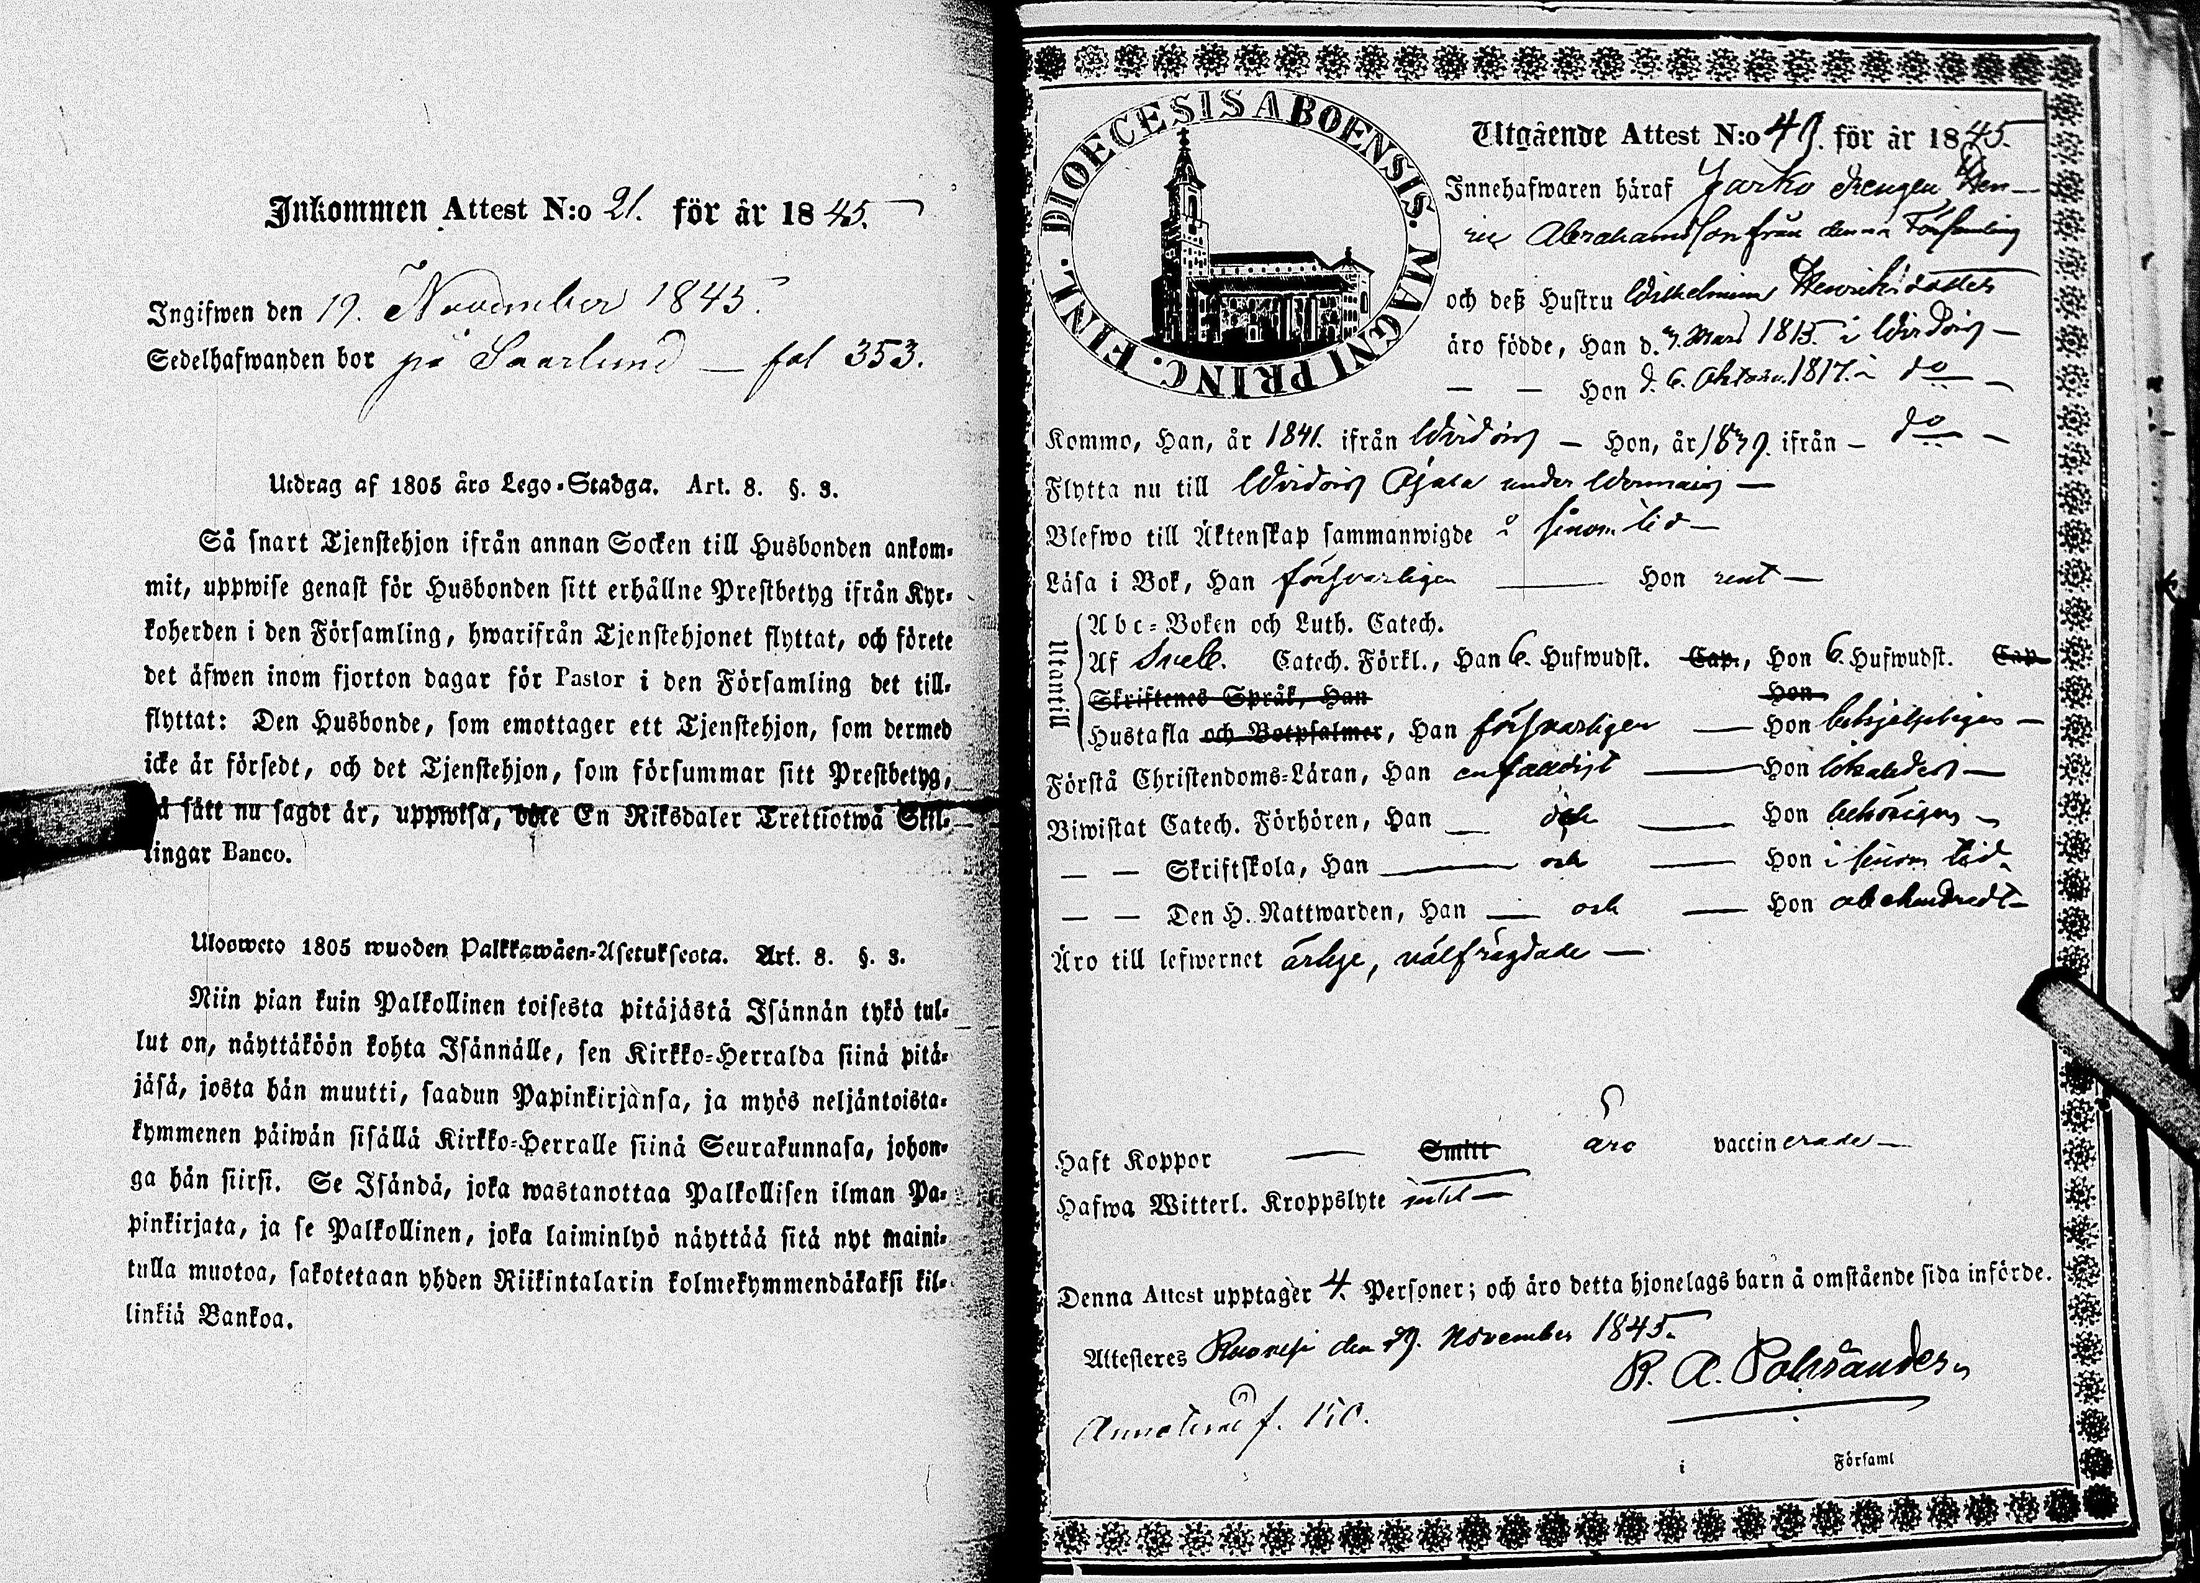 Inkommen Attest N:o 21. för år 1845.
Ingifwen den 19. November 1845.
Sedelhafwanden bor på Saarlund — fol 353.
Utdrag af 1805 års Lego-Stadga. Art. 8. §. 3.
Så snart Tjenstehjon ifrån annan Socken till Husbonden ankom-
mit, uppwise genast för Husbonden sitt erhållne Prestbetyg ifrån Kyr-
koherden i den Församling, hwarifrån Tjenstehjonet flyttat, och förete
det äfwen inom fjorton dagar för Pastor i den Församling det till-
flyttat: Den Husbonde, som emottager ett Tjenstehjon, som dermed
icke är försedt, och det Tjenstehjon, som försummar sitt Prestbetyg,
å sätt nu sagdt är, uppwisa, böte En Riksdaler Trettiotwå Skil-
lingar Banco.
Ulosweto 1805 wuoden Palkkawäen-Asetuksesta. Art. 8. §. 3.
Niin pian kuin Palkollinen toisesta pitäjästä Isännän tykö tul-
lut on, näyttäköön kohta Isännälle, sen Kirkko-Herralda siinä pitä-
jäsä, josta hän muutti, saadun Papinkirjansa, ja myös neljäntoista-
kymmenen päiwän sisällä Kirkko-Herralle siinä Seurakunnasa, johon-
ga hän siirsi. Se Isändä, joka wastanottaa Palkollisen ilman Pa-
pinkirjata, ja se Palkollinen, joka laiminlyö näyttää sitä nyt maini-
tulla muotoa, sakotetaan yhden Riikintalarin kolmekymmendäkaksi kil-
linkiä Bankoa.
DIOECESIS ABOENSIS. MAGNI PRINC. FINL.
Utgående Attest N:o 49. för år 1845.
Innehafwaren häraf Jarko drengen Hen-
ric Abrahamsson från denna Församling
och deß Hustru Wilhelmina Henriksdotter
äro födde, Han d. 7. Mars 1815. i Wirdois —
— — Hon d. 6. Oktober 1817. i do —
Kommo, Han, år 1841. ifrån Wirdois — Hon, år 1839. ifrån — do —
Flytta nu till Wirdois under —
Blefwo till Äktenskap sammanwigde i sinom tid —
Läsa i Bok, Han försvarligen — Hon rent —
Utantill
Abc-Boken och Luth. Catech.
Af Sveb. Catech. Förkl., Han 6. Hufwudst. Cap., Hon 6. Hufwudst. Cap.
Skriftenes Språk, Han Hon
Hustafla och Botpsalmer, Han försvarligen — Hon behjelpligen —
Förstå Christendoms-Läran, Han enfaldigt — Hon likaledes —
Biwistat Catech. Förhören, Han — och — Hon behörigen —
— — Skriftskola, Han — och — Hon i sinom tid
— — Den H. Nattwarden, Han — och — Hon obehindradt —
Äro till lefwernet ärlige, välfrägdade —
Haft Koppor — Smitt äro vaccinerade —
Hafwa Witterl. Kroppslyte intet —
Denna Attest upptager 4. Personer; och äro detta hjonelags barn å omstående sida införde.
Attesteres Ruovesi den 19. November 1845.
R. A. Polviander
f. 150.
i Församl